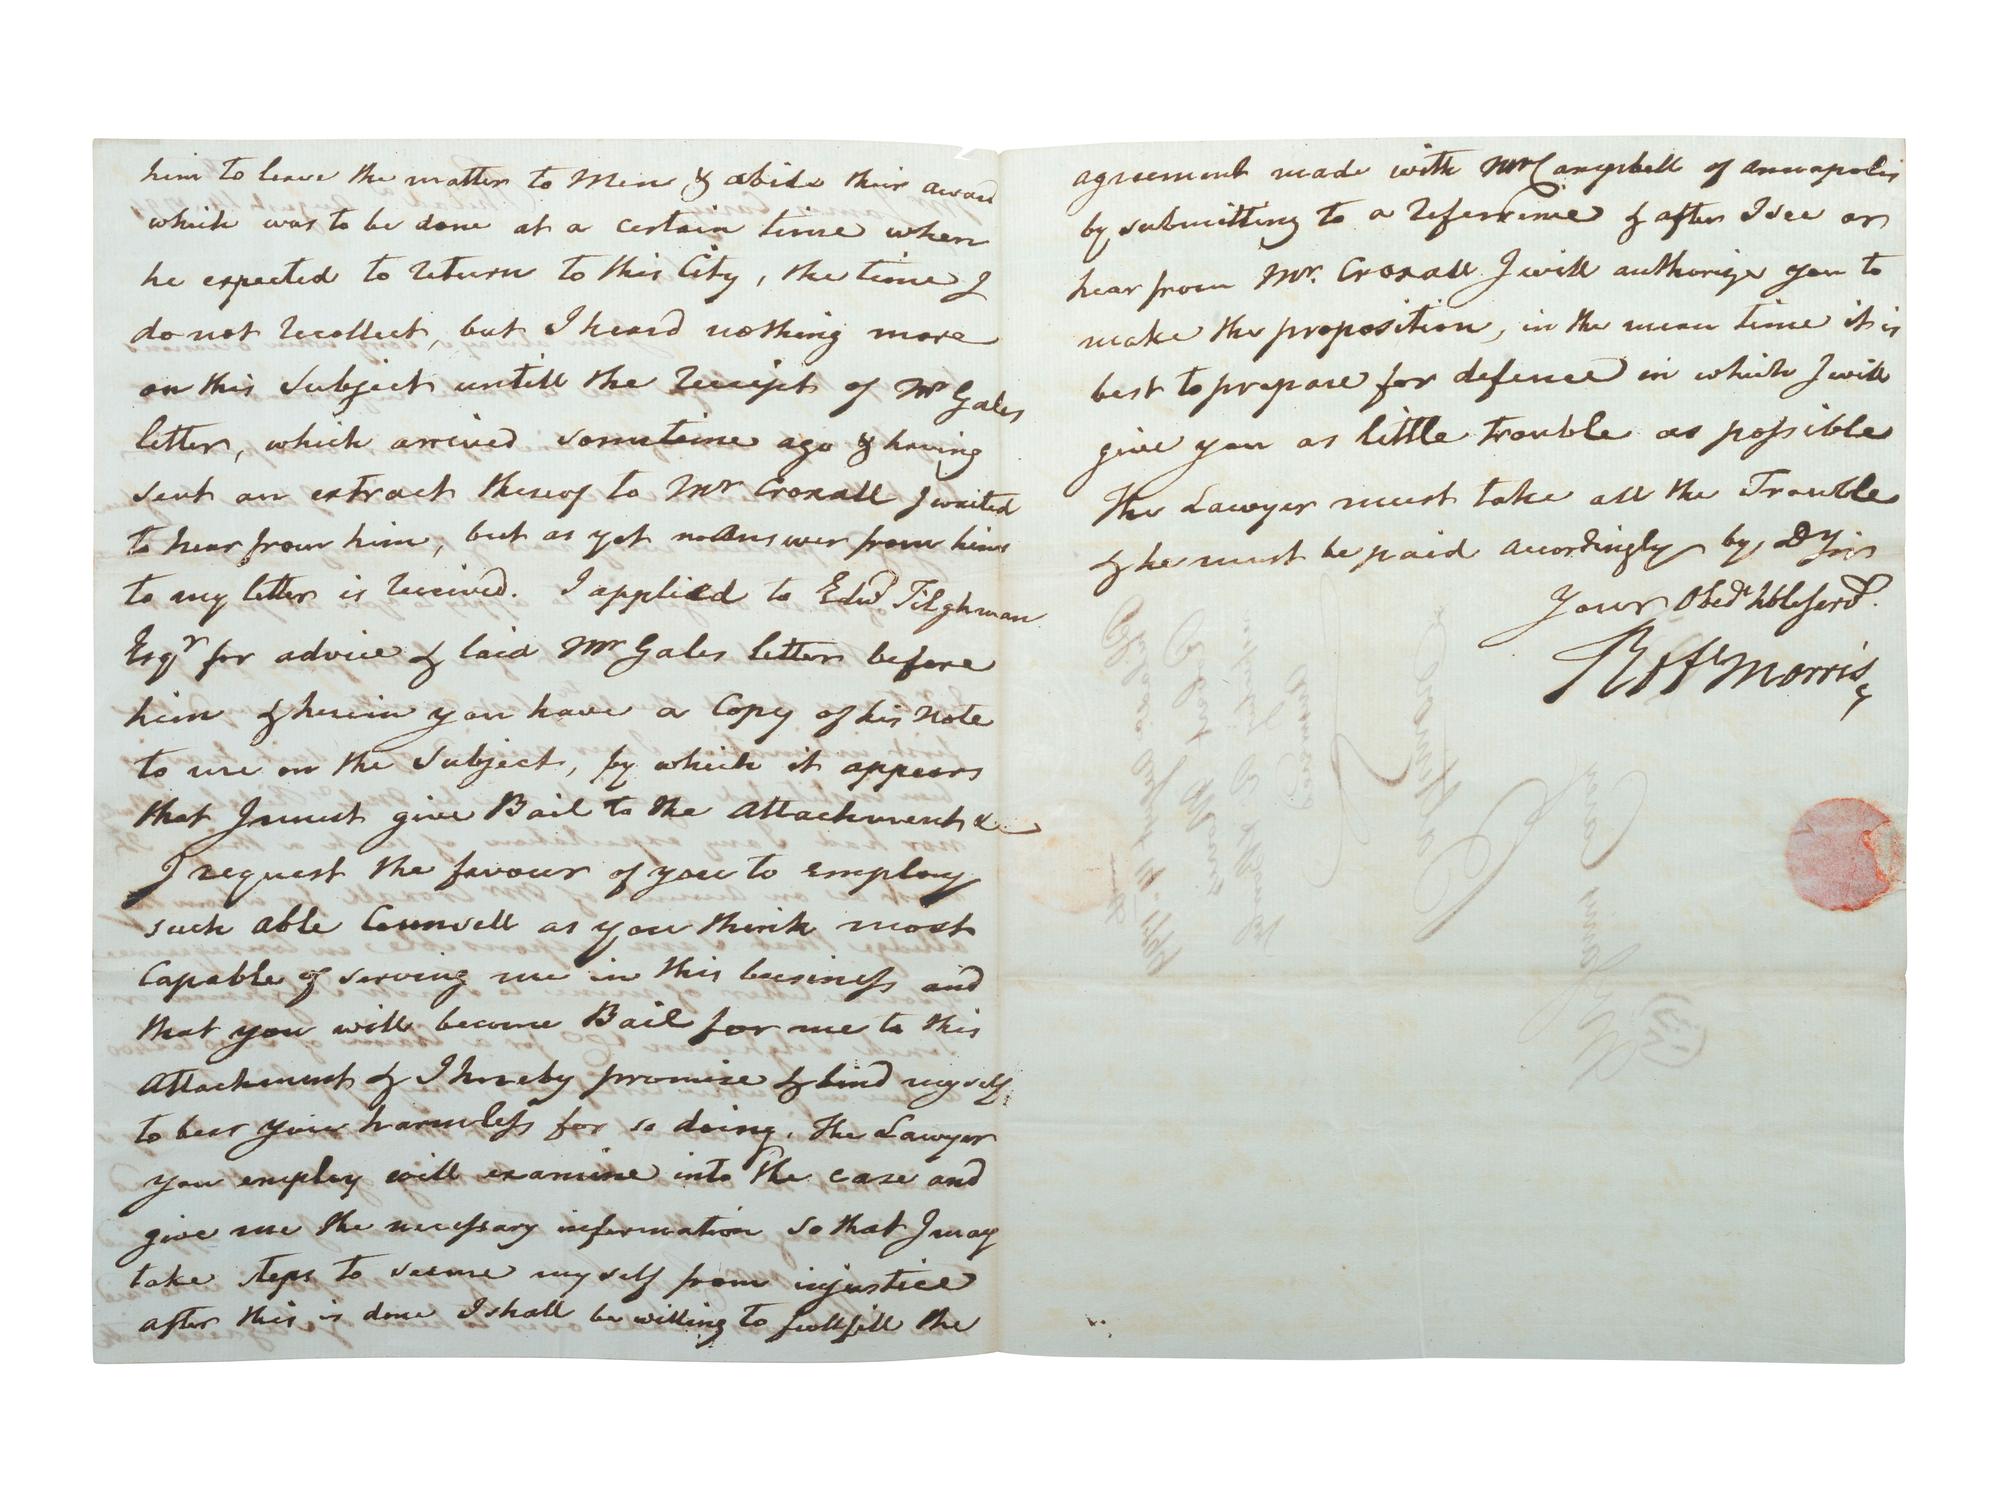 him to leave the matter to Men & abide their award
which was to be done at a certain time when
he expected to return to this City, the time I
do not recollect, but I heard nothing more
on this subject untill the receipt of Mr Gales
letter, which arrived sometime ago & having
sent an extract thereof to Mr Croxall I waited
to hear from him, but as yet no Answer from him
to my letter is received. I applied to Edwd Tilghman
Esqr for advice & laid Mr Gales letter before
him & herein you have a Copy of his Note
to me on the subject, by which it appears
that I must give Bail to the Attachment &
I request the favour of you to employ
such able Counsell as you think most
Capable of serving me in this business and
that you will become Bail for me to this
Attachment & I hereby promise & bind myself
to bear you harmless for so doing. The Lawyer
you employ will examine into the case and
give me the necessary information so that I may
take steps to secure myself from injustice
after this is done I shall be willing to fullfill the
agreement made with Mr Campbell of Annapolis
by submitting to a Reference & after I see or
hear from Mr. Croxall I will authorize you to
make the proposition, in the mean time it is
best to prepare for defence in which I will
give you as little trouble as possible
The Lawyer must take all the Trouble
& he must be paid accordingly by Dr Sir
Your Obedt hble servt.
Robt Morris